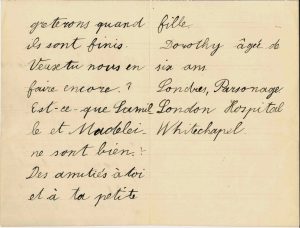 greterons quand
ils sont finis.
Veux tu nous en
faire encore?
Est-ce que Camil
le et Madelei-
ne sont bien?
Des amitiés à toi
et à ta petite
fille
Dorothy âgée de
six ans
Londres, Parsonage
London Hospital
Whitechapel.